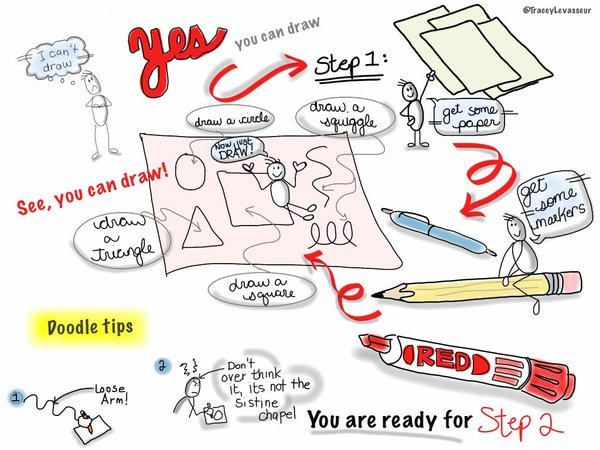 @TraceyLevasseur
I can't
draw
Yes
you can draw
Step 1:
get some
paper
draw a circle
draw a
squiggle
NOW JUST
DRAW!
See, you can draw!
get
some
markers
draw
a
triangle
draw a
square
RED
Doodle tips
1
Loose
Arm!
2
Don't
over think
it, its not the
Sistine
chapel
You are ready for Step 2